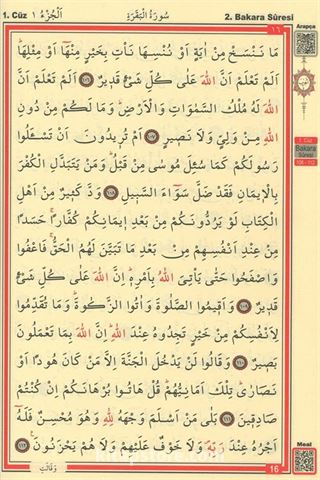 1. Cüz ١ اَلْجُزْءُ
سُورَةُ الْبَقَرَةِ
2. Bakara Sûresi
Arapça
١٦
مَا نَنْسَخْ مِنْ اٰيَةٍ اَوْ نُنْسِهَا نَأْتِ بِخَيْرٍ مِنْهَٓا اَوْ مِثْلِهَاۜ
اَلَمْ تَعْلَمْ اَنَّ اللّٰهَ عَلٰى كُلِّ شَيْءٍ قَد۪يرٌ ﴿١٠٦﴾ اَلَمْ تَعْلَمْ اَنَّ
اللّٰهَ لَهُ مُلْكُ السَّمٰوَاتِ وَالْاَرْضِۜ وَمَا لَكُمْ مِنْ دُونِ
اللّٰهِ مِنْ وَلِيٍّ وَلَا نَص۪يرٍ ﴿١٠٧﴾ اَمْ تُر۪يدُونَ اَنْ تَسْـَٔلُوا
رَسُولَكُمْ كَمَا سُئِلَ مُوسٰى مِنْ قَبْلُۜ وَمَنْ يَتَبَدَّلِ الْكُفْرَ
بِالْا۪يمَانِ فَقَدْ ضَلَّ سَوَٓاءَ السَّب۪يلِ ﴿١٠٨﴾ وَدَّ كَث۪يرٌ مِنْ اَهْلِ
الْكِتَابِ لَوْ يَرُدُّونَكُمْ مِنْ بَعْدِ ا۪يمَانِكُمْ كُفَّارًاۚ حَسَدًا
مِنْ عِنْدِ اَنْفُسِهِمْ مِنْ بَعْدِ مَا تَبَيَّنَ لَهُمُ الْحَقُّۚ فَاعْفُوا
وَاصْفَحُوا حَتّٰى يَأْتِيَ اللّٰهُ بِاَمْرِه۪ۜ اِنَّ اللّٰهَ عَلٰى كُلِّ شَيْءٍ
قَد۪يرٌ ﴿١٠٩﴾ وَاَق۪يمُوا الصَّلٰوةَ وَاٰتُوا الزَّكٰوةَۜ وَمَا تُقَدِّمُوا
لِاَنْفُسِكُمْ مِنْ خَيْرٍ تَجِدُوهُ عِنْدَ اللّٰهِۜ اِنَّ اللّٰهَ بِمَا تَعْمَلُونَ
بَص۪يرٌ ﴿١١٠﴾ وَقَالُوا لَنْ يَدْخُلَ الْجَنَّةَ اِلَّا مَنْ كَانَ هُودًا اَوْ
نَصَارٰىۜ تِلْكَ اَمَانِيُّهُمْۜ قُلْ هَاتُوا بُرْهَانَكُمْ اِنْ كُنْتُمْ
صَادِق۪ينَ ﴿١١١﴾ بَلٰى مَنْ اَسْلَمَ وَجْهَهُ لِلّٰهِ وَهُوَ مُحْسِنٌ فَلَهُٓ
اَجْرُهُ عِنْدَ رَبِّه۪ۖ وَلَا خَوْفٌ عَلَيْهِمْ وَلَا هُمْ يَحْزَنُونَ۟ ﴿١١٢﴾
1. Cüz
Bakara
Sûresi
106 - 112
Meal
وَقَالَتِ
16